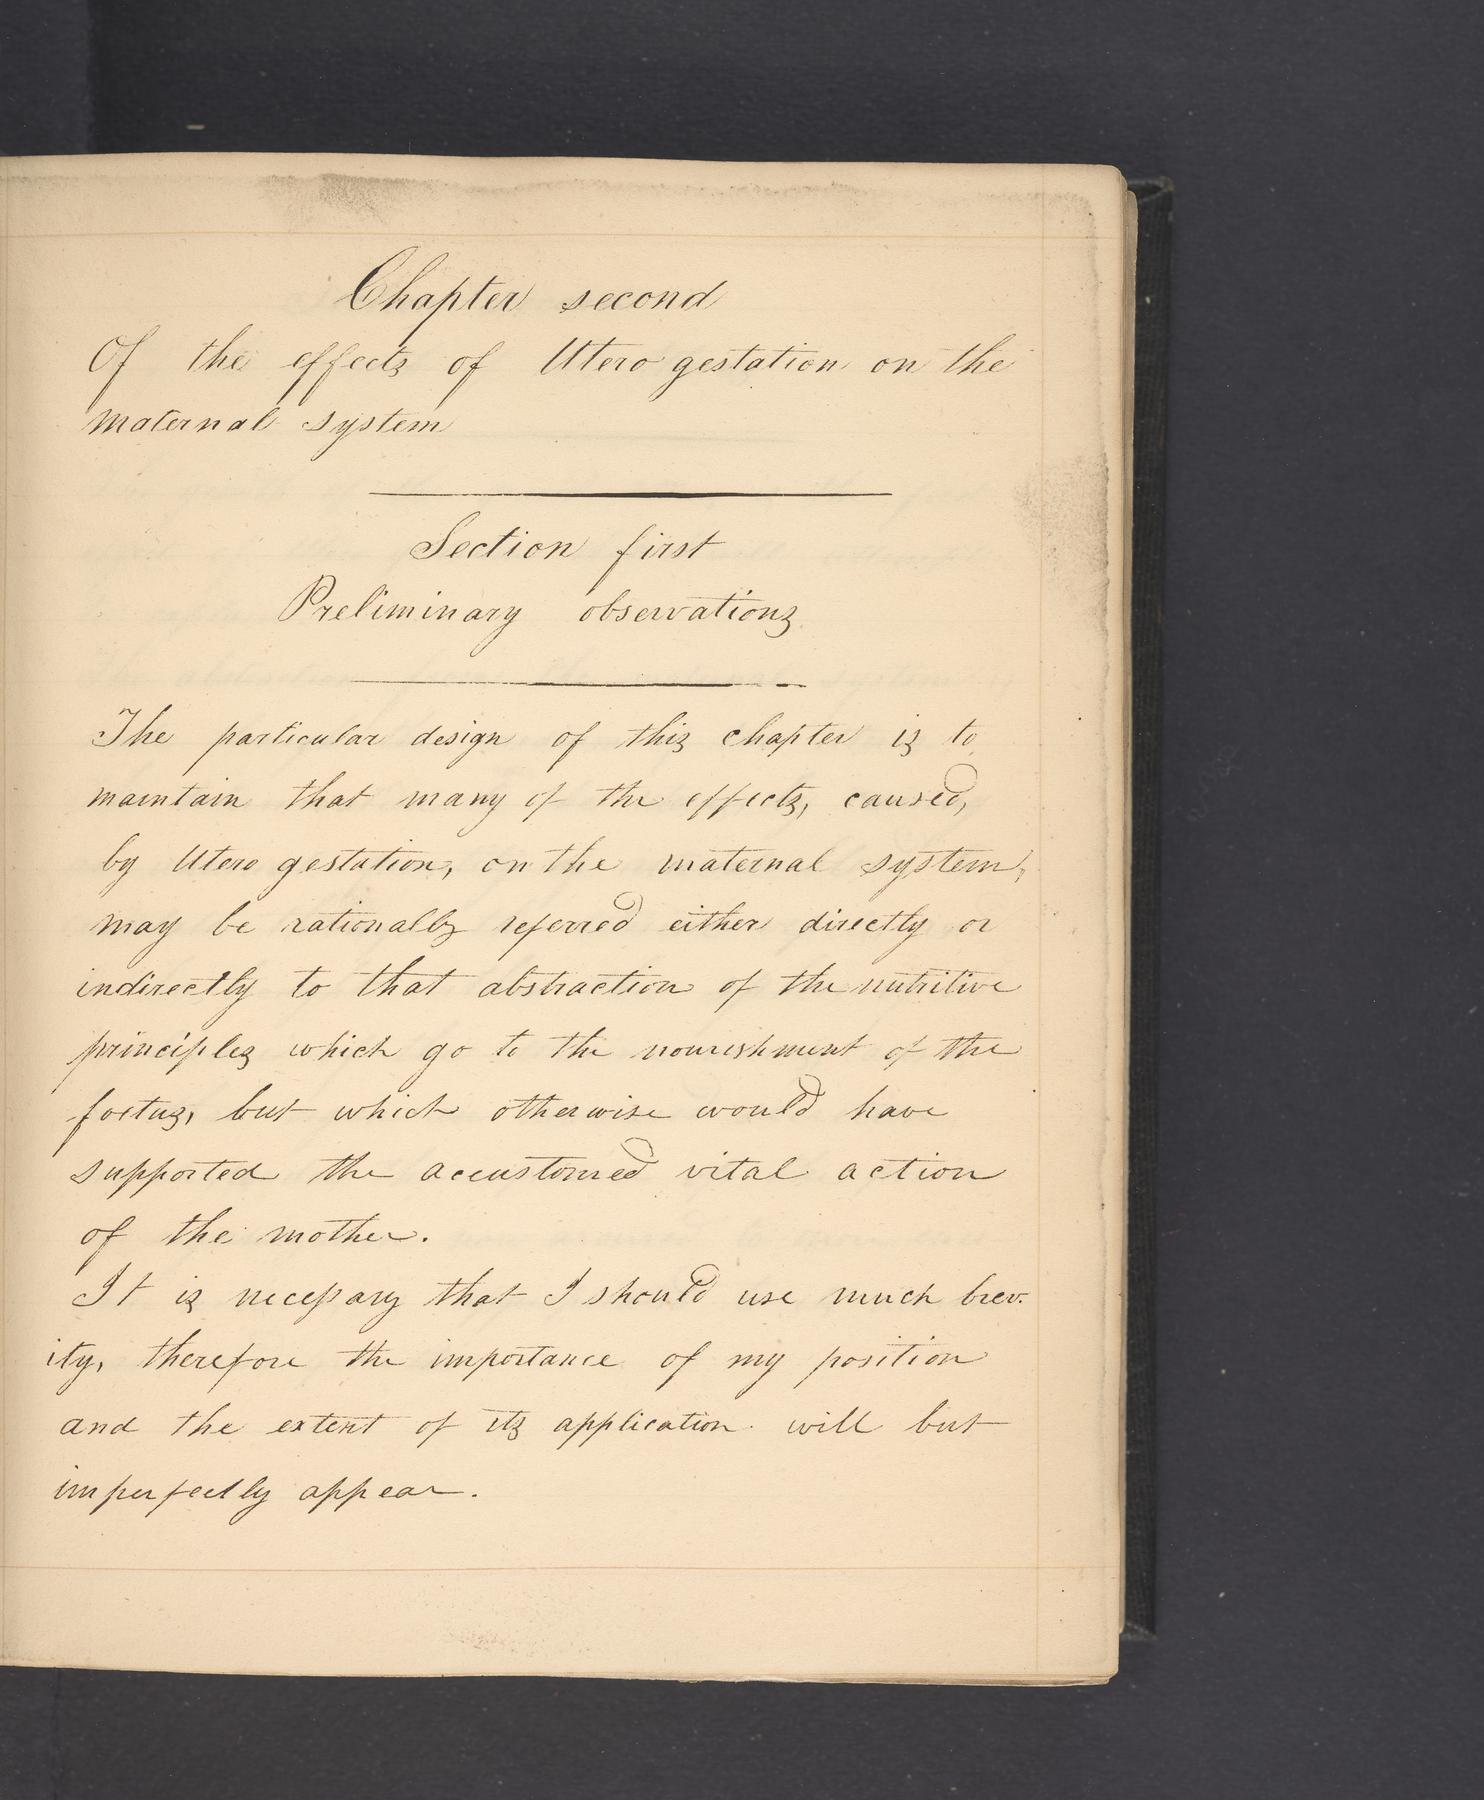 Chapter second
Of the effects of Utero gestation on the
maternal system
Section first
Preliminary observations
The particular design of this chapter is to
maintain that many of the effects, caused,
by Utero gestation, on the maternal system,
may be rationally referred either directly or
indirectly to that abstraction of the nutritive
principles which go to the nourishment of the
foetus, but which otherwise would have
supported the accustomed vital action
of the mother.
It is necessary that I should use much brev-
ity, therefore the importance of my position
and the extent of its application will but
imperfectly appear.